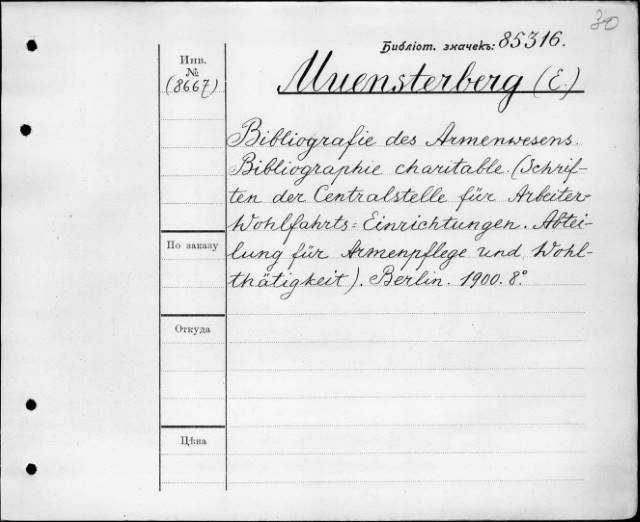 30
Библіот. значекъ: 85316.
Инв.
№
(8667)
Muensterberg (E.)
Bibliografie des Armenwesens.
Bibliographie charitable. (Schrif-
ten der Centralstelle für Arbeiter-
Wohlfahrts-Einrichtungen. Abtei-
lung für Armenpflege und Wohl-
thätigkeit). Berlin. 1900. 8°.
По заказу
Откуда
Цѣна